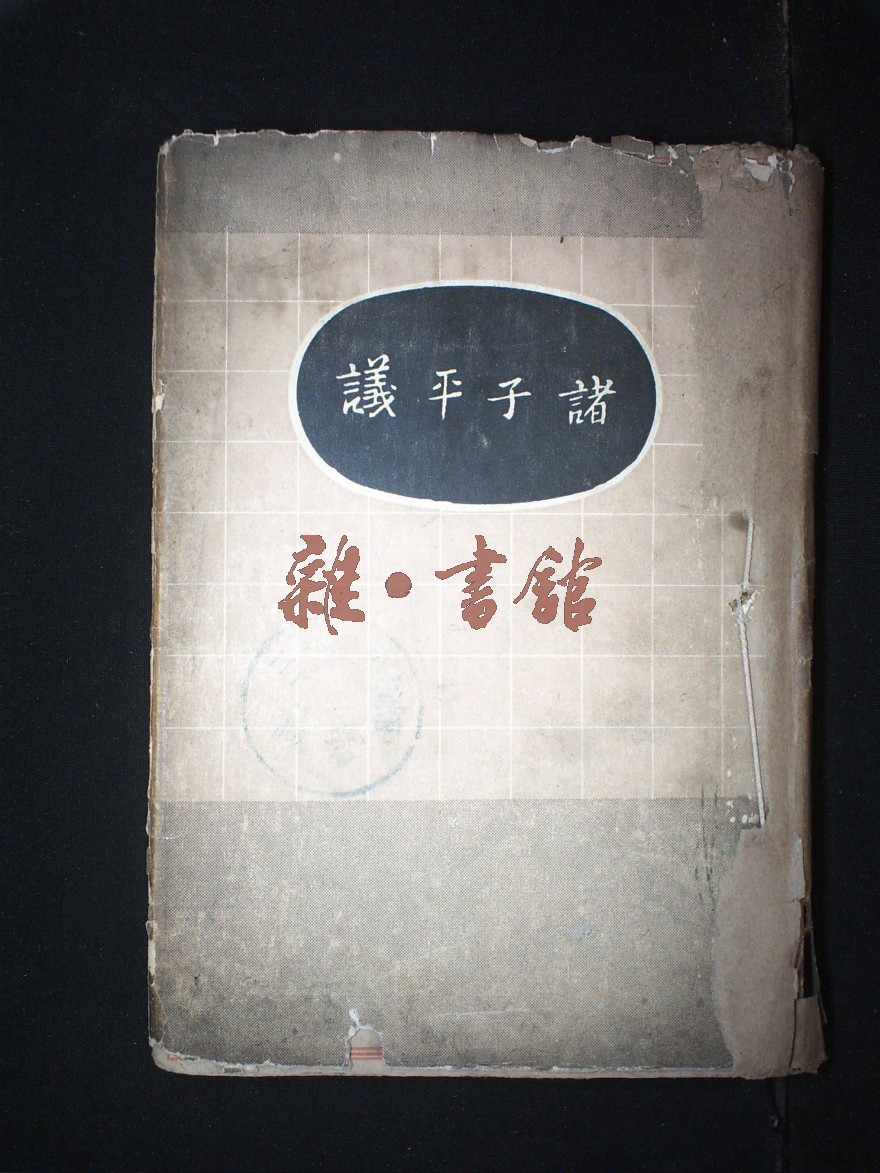 諸子平議
雜·書館